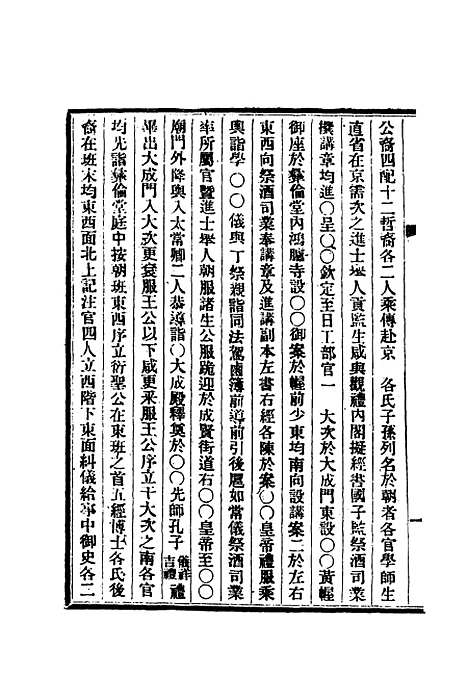 公裔四配十二哲裔各二人乘傳赴京　各氏子孫列名於朝者各官學師生
直省在京需次之進士舉人貢監生咸與觀禮內閣擬經書國子監祭酒司業
撰講章均進〇呈〇〇欽定至日工部官一　大次於大成門東設〇〇黃幄
御座於彝倫堂內鴻臚寺設〇〇御案於幄前少東均南向設講案二於左右
東西向祭酒司業奉講章及進講副本左書右經各陳於案〇〇皇帝禮服乘
輿詣學〇〇儀與丁祭親詣同法駕鹵簿前導前引後扈如常儀祭酒司業
率所屬官暨進士舉人朝服諸生公服跪迎於成賢街道右〇〇皇帝至〇〇
廟門外降輿入太常卿二人恭導詣〇大成殿釋奠於〇〇先師孔子儀詳吉禮禮
畢出大成門入大次更袞服王公以下咸更采服王公序立于大次之南各官
均先詣彝倫堂庭中按朝班東西序立衍聖公在東班之首五經博士各氏後
裔在班末均東西面北上記注官四人立西階下東面糾儀給事中御史各二
一